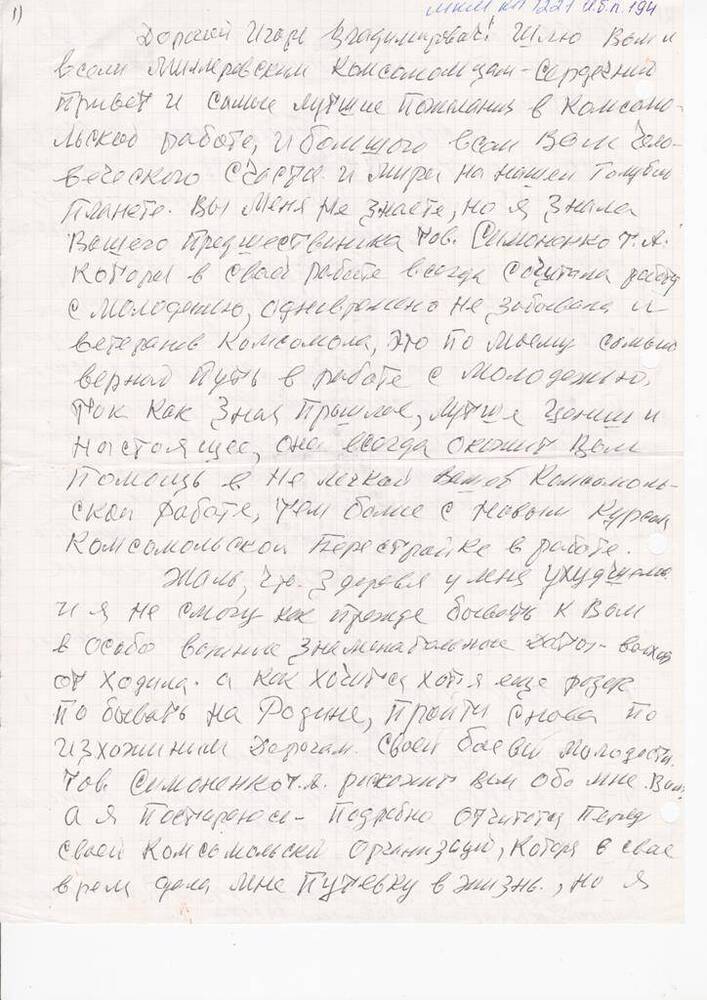 1)
МКМ КП 1221 И.б.п. 194
Дорогой Игорь Владимирович! Шлю Вам и
всем Миллеровским Комсомольцам - Сердечный
Привет и самые лутшие Пожелания в Комсомо-
льской работе, и большого всем Вам Чело-
веческого Счастья и Мира на нашей Голубой
Планете. Вы Меня Не Знаете, но я Знала
Вашего Предшественника тов. Симоненко Т.А.
Которы в своей работе всегда Считала работу
с Молодежью, одновремено не Забывала и
ветеранов Комсомола, Это По Моему самый
верной Путь в работе с Молодежью.
Так Как Зная Прошлое, лутше Цениш и
Настоящее, она всегда окажит Вам
Помощь в Не легкой Вашой Комсомоль-
ской работе, тем более с Новым Курсом
Комсомольской Перестройке в работе.
Жаль, что Здоровья у меня ухудшило
и я не смогу как прежде бывать к Вам
в особо важние Знаменательные Даты -
от ходила. а Как хочится хотя еще разок
По бывать на Родине, Пройти Снова По
изхожиним Дорогам Своей боевой Молодости.
Тов. Симоненко Т.А. раскажит Вам обо мне.
а я Постараюсь - Подробно отчитатся Перед
Своей Комсомольской Организацией, Котора в свае
время дала Мне Путевку в Жизнь., Но я